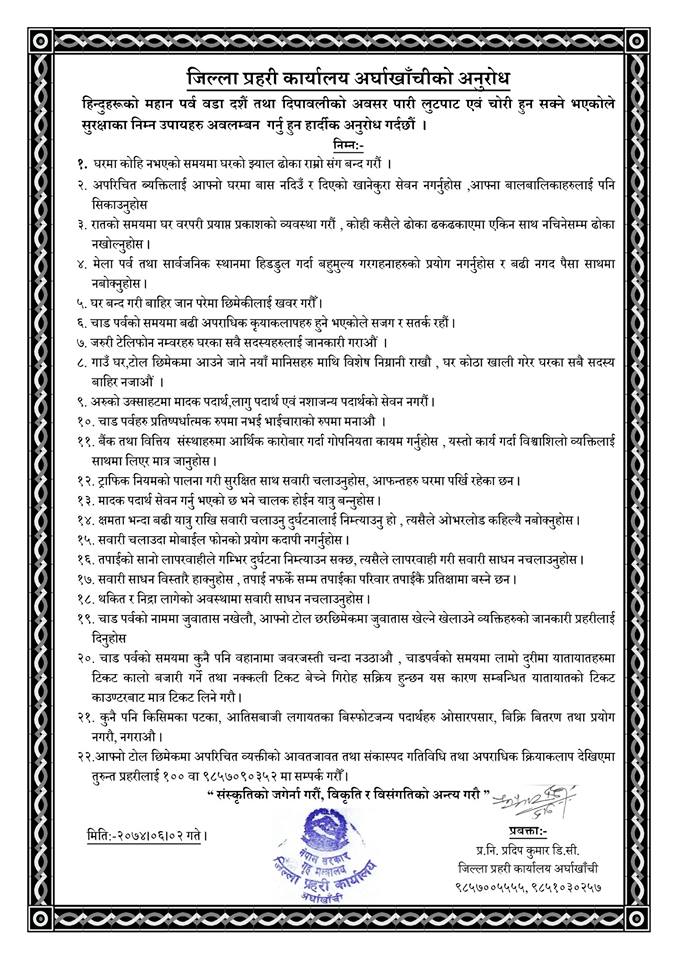 जिल्ला प्रहरी कार्यालय अर्घाखाँचीको अनुरोध
हिन्दुहरूको महान पर्व वडा दशैं तथा दिपावलीको अवसर पारी लुटपाट एवं चोरी हुन सक्ने भएकोले
सुरक्षाका निम्न उपायहरु अवलम्बन गर्नु हुन हार्दीक अनुरोध गर्दछौं ।
निम्न:-
१. घरमा कोहि नभएको समयमा घरको झ्याल ढोका राम्रो संग बन्द गरौं ।
२. अपरिचित ब्यक्तिलाई आफ्नो घरमा बास नदिउँ र दिएको खानेकुरा सेवन नगर्नुहोस ,आफ्ना बालबालिकाहरुलाई पनि
सिकाउनुहोस
३. रातको समयमा घर वरपरी प्रयाप्त प्रकाशको व्यवस्था गरौं , कोही कसैले ढोका ढकढकाएमा एकिन साथ नचिनेसम्म ढोका
नखोल्नुहोस ।
४. मेला पर्व तथा सार्वजनिक स्थानमा हिडडुल गर्दा बहुमुल्य गरगहनाहरुको प्रयोग नगर्नुहोस र बढी नगद पैसा साथमा
नबोक्नुहोस ।
५. घर बन्द गरी बाहिर जान परेमा छिमेकीलाई खवर गरौँ ।
६. चाड पर्वको समयमा बढी अपराधिक कृयाकलापहरु हुने भएकोले सजग र सतर्क रहौं ।
७. जरुरी टेलिफोन नम्वरहरु घरका सवै सदस्यहरुलाई जानकारी गराऔं ।
८. गाउँ घर,टोल छिमेकमा आउने जाने नयाँ मानिसहरु माथि विशेष निग्रानी राखौ , घर कोठा खाली गरेर घरका सबै सदस्य
बाहिर नजाऔं ।
९. अरुको उक्साहटमा मादक पदार्थ,लागु पदार्थ एवं नशाजन्य पदार्थको सेवन नगरौं ।
१०. चाड पर्वहरु प्रतिष्पर्धात्मक रुपमा नभई भाईचाराको रुपमा मनाऔ ।
११. बैंक तथा वित्तिय संस्थाहरुमा आर्थिक कारोबार गर्दा गोपनियता कायम गर्नुहोस , यस्तो कार्य गर्दा विश्वाशिलो व्यक्तिलाई
साथमा लिएर मात्र जानुहोस ।
१२. ट्राफिक नियमको पालना गरी सुरक्षित साथ सवारी चलाउनुहोस, आफन्तहरु घरमा पर्खि रहेका छन ।
१३. मादक पदार्थ सेवन गर्नु भएको छ भने चालक होईन यात्रु बन्नुहोस ।
१४. क्षमता भन्दा बढी यात्रु राखि सवारी चलाउनु दुर्घटनालाई निम्त्याउनु हो , त्यसैले ओभरलोड कहिल्यै नबोक्नुहोस ।
१५. सवारी चलाउदा मोबाईल फोनको प्रयोग कदापी नगर्नुहोस ।
१६. तपाईको सानो लापरवाहीले गम्भिर दुर्घटना निम्त्याउन सक्छ, त्यसैले लापरवाही गरी सवारी साधन नचलाउनुहोस ।
१७. सवारी साधन विस्तारै हाक्नुहोस , तपाई नफर्के सम्म तपाईका परिवार तपाईकै प्रतिक्षामा बस्ने छन ।
१८. थकित र निद्रा लागेको अवस्थामा सवारी साधन नचलाउनुहोस ।
१९. चाड पर्वको नाममा जुवातास नखेलौ, आफ्नो टोल छरछिमेकमा जुवातास खेल्ने खेलाउने व्यक्तिहरुको जानकारी प्रहरीलाई
दिनुहोस
२०. चाड पर्वको समयमा कुनै पनि वहानामा जवरजस्ती चन्दा नउठाऔ , चाडपर्वको समयमा लामो दुरीमा यातायातहरुमा
टिकट कालो बजारी गर्ने तथा नक्कली टिकट बेच्ने गिरोह सक्रिय हुन्छन यस कारण सम्बन्धित यातायातको टिकट
काउण्टरबाट मात्र टिकट लिने गरौ ।
२१. कुनै पनि किसिमका पटका, आतिसबाजी लगायतका बिस्फोटजन्य पदार्थहरु ओसारपसार, बिक्रि बितरण तथा प्रयोग
नगरौ, नगराऔ ।
२२.आफ्नो टोल छिमेकमा अपरिचित व्यक्तीको आवतजावत तथा संकास्पद गतिविधि तथा अपराधिक क्रियाकलाप देखिएमा
तुरुन्त प्रहरीलाई १०० वा ९८५७०९०३५२ मा सम्पर्क गरौँ ।
“ संस्कृतिको जगेर्ना गरौं, विकृति र विसंगतिको अन्त्य गरौ ”
मिति:-२०७४।०६।०२ गते ।
नेपाल सरकार
गृह मन्त्रालय
जिल्ला प्रहरी कार्यालय
अर्घाखाँची
प्रवक्ता:-
प्र.नि. प्रदिप कुमार डि.सी.
जिल्ला प्रहरी कार्यालय अर्घाखाँची
९८५७००५५५५, ९८५१०३०२५७